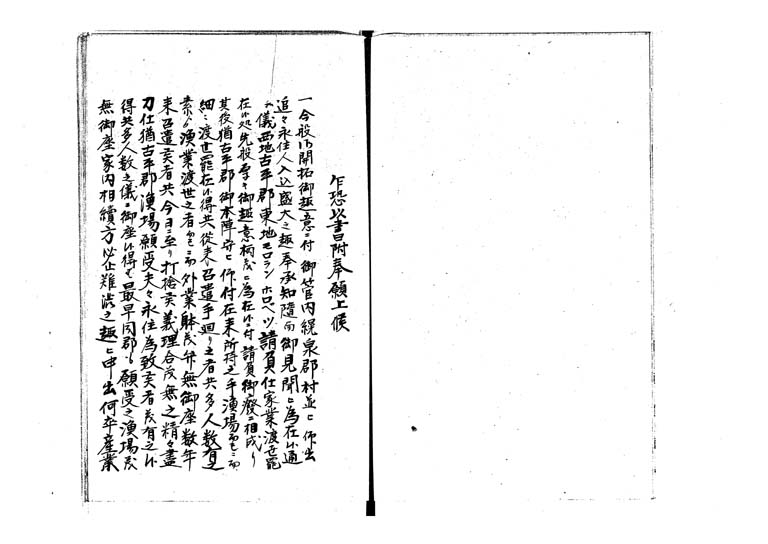 乍恐以書附奉願上候
一今般御開拓御趣意ニ付御管内幌泉郡村並ニ仰出
追々永住人入込盛大之趣奉承知随而御見聞ニ為在候通
儀西地古平郡東地モロランホロベツ請負仕家業渡世罷
在候処先般厚キ御趣意柄ニ為在候付請負御廃ニ相成リ
其夜猶古平郡御本陣守ニ仰付在来所持之手漁場而已ニ而
細々渡世罷在候得共従来ゟ召遣手廻リ之者共多人数有之
素ゟ漁業渡世之者而已ニ而外業躰ハ弁無御座数年
来召遣候者共今日ニ至リ打捨候義理合茂無之精々尽
力仕猶古平郡漁場願受夫々永住為致候者茂有之候
得共多人数之儀ニ御座候得ば最早同郡ゟ願受之漁場茂
無御座家内相続方必止難渋之趣ニ申出何卒産業